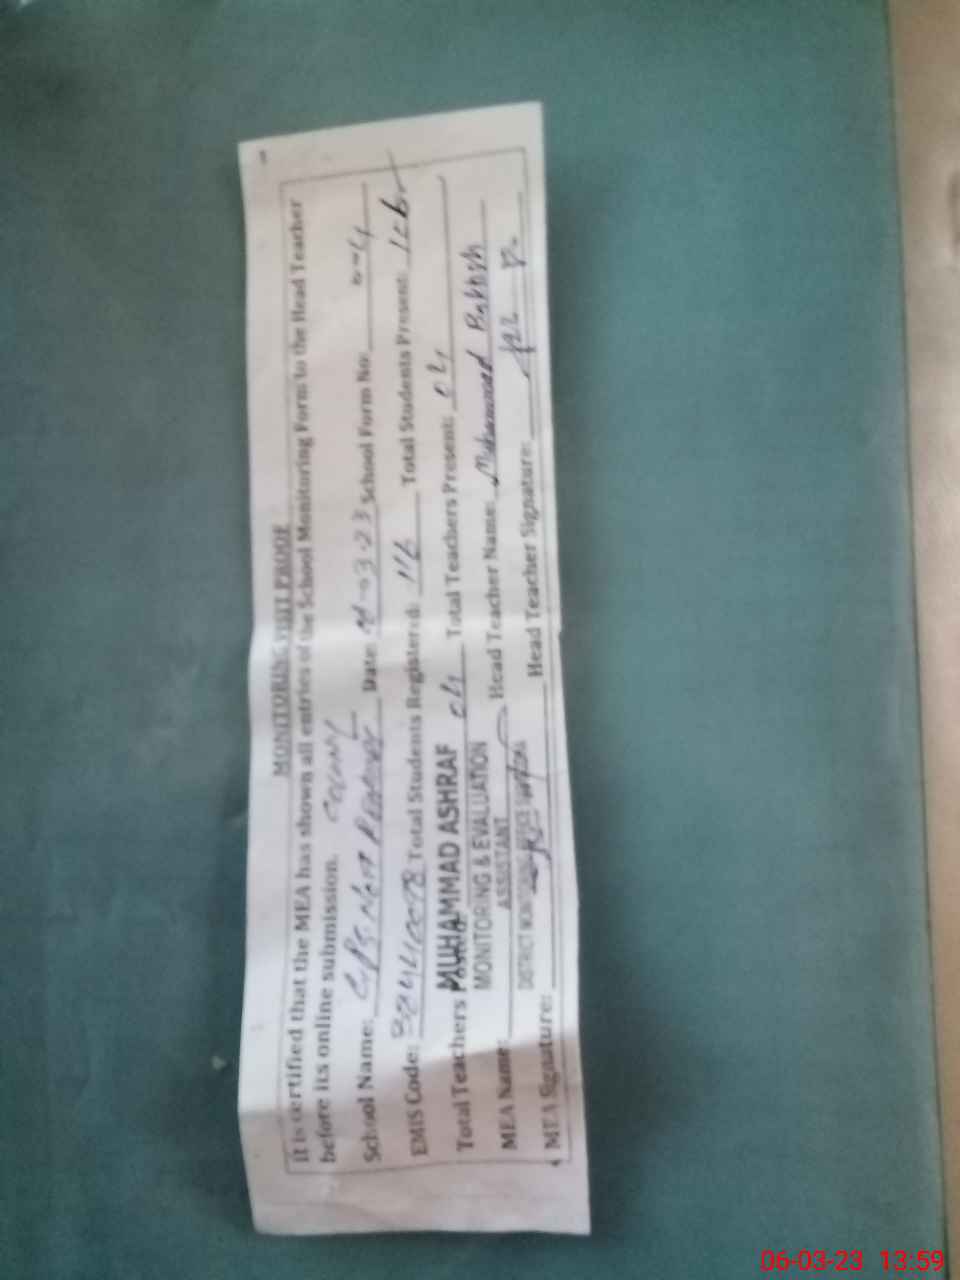 MONITORING VISIT PROOF
it is certified that the MEA has shown all entries of the School Monitoring Form to the Head Teacher
before its online submission.
School Name: GPS Date: -03-23 School Form No:
EMIS Code: Total Students Registered: 116 Total Students Present:
Total Teachers 04 Total Teachers Present: 04
MUHAMMAD ASHRAF
MONITORING & EVALUATION
ASSISTANT
DISTRICT MONITORING OFFICE
MEA Name: Head Teacher Name: Muhammad Bakhsh
MEA Signature: Head Teacher Signature:
06-03-23 13:59